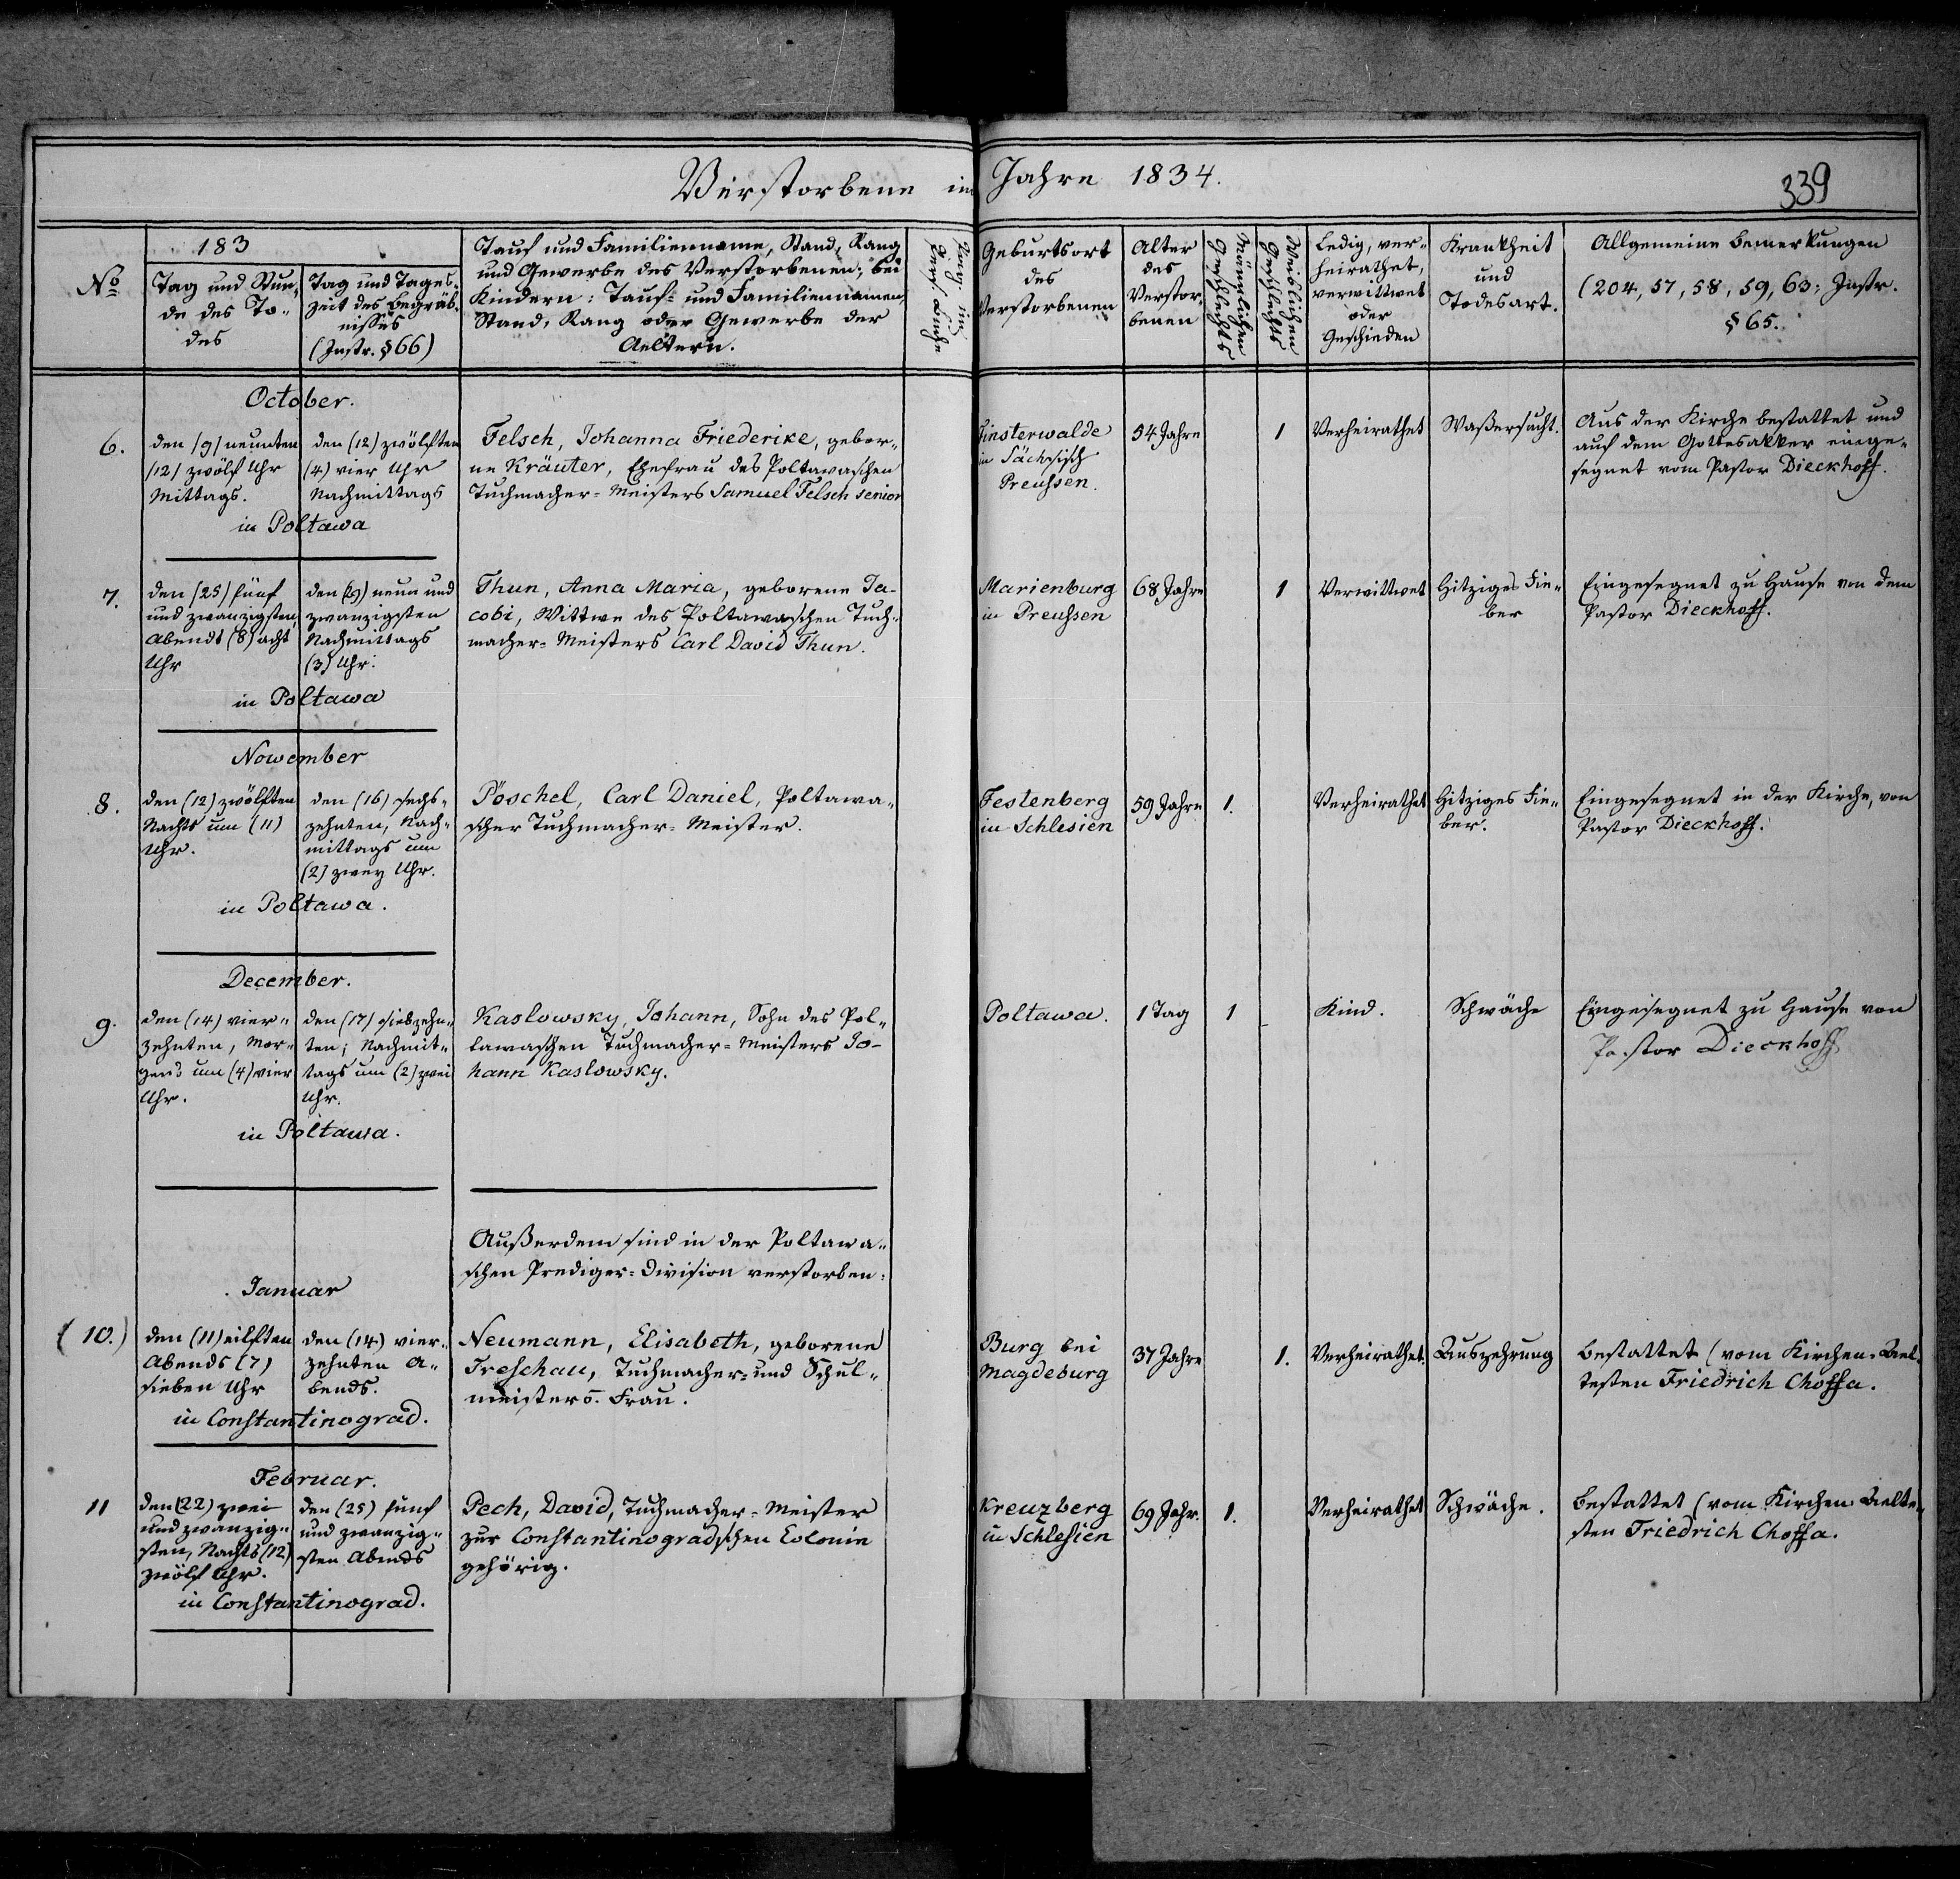 Verstorbene im Jahre 1834.
339
No
183
Tag und Stun-
de des To-
des
Tag und Tages-
zeit des Begräb-
nisses
(Instr. § 66)
Tauf und Familienname, Stand, Rang
und Gewerbe des Verstorbenen; bei
Kindern: Tauf- und Familiennamen,
Stand, Rang oder Gewerbe der
Aeltern.
Geburtsort
des
Verstorbenen
Alter
des
Verstor-
benen
Männlichen
Geschlechts
Weiblichen
Geschlechts
Ledig, ver-
heirathet,
verwittwet
oder
Geschieden
Krankheit
und
Todesart.
Allgemeine Bemerkungen
(204, 57, 58, 59, 63; Instr.
§ 65.
October.
6.
den (9) neunten
(12) zwölf Uhr
Mittags.
den (12) zwölften
(4) vier Uhr
Nachmittags
in Poltawa
Felsch, Johanna Friederike, gebor-
ne Kräuter, Ehefrau des Poltawaschen
Tuchmacher-Meisters Samuel Felsch senior
Finsterwalde
in Sächsisch
Preussen.
54 Jahre
1
Verheirathet
Waßersucht.
Aus der Kirche bestattet und
auf dem Gottesakker einge-
segnet vom Pastor Dieckhoff.
7.
den (25) fünf
und zwanzigsten,
Abendt (8) acht
Uhr
den (29) neun und
zwanzigsten
Nachmittags
(3) Uhr.
in Poltawa
Thun, Anna Maria, geborene Ja-
cobi, Wittwe des Poltawaschen Tuch-
macher-Meisters Carl David Thun.
Marienburg
in Preussen
68 Jahre
1
Verwittwet
Hitziges Fie-
ber
Eingesegnet zu Hause von dem
Pastor Dieckhoff.
Nowember
8.
den (12) zwölften
Nachts um (11)
Uhr.
den (16) sechs-
zehnten, Nach-
mittags um
(2) zwey Uhr.
in Poltawa.
Pöschel, Carl Daniel, Poltawa-
scher Tuchmacher-Meister.
Festenberg
in Schlesien
59 Jahre
1.
Verheirathet
Hitziges Fie-
ber.
Eingesegnet in der Kirche, von
Pastor Dieckhoff.
December.
9.
den (14) vier-
zehnten, Mor-
gens um (4) vier
Uhr.
den (17) siebzehn-
ten; Nachmit-
tags um (2) zwei
Uhr.
in Poltawa.
Kaslowsky, Johann, Sohn des Pol-
tawaschen Tuchmacher-Meisters Jo-
hann Kaslowsky.
Poltawa.
1 Tag
1
Kind.
Schwäche
Eingesegnet zu Hause von
Pastor Dieckhoff
Außerdem sind in der Poltawa-
schen Prediger-Division verstorben:
Januar
(10.)
den (11) eilften
Abends (7)
sieben Uhr
den (14) vier-
zehnten A-
bends.
in Constantinograd.
Neumann, Elisabeth, geborene
Treschau, Tuchmacher- und Schul-
meisters-Frau.
Burg bei
Magdeburg
37 Jahre
1.
Verheirathet.
Auszehrung
Bestattet (vom Kirchen-Ael-
testen Friedrich Choffa.
Februar.
11
den (22) zwei
und zwanzig-
sten, Nachts (12)
zwölf Uhr.
den (25) fünf
und zwanzig-
sten Abends
in Constantinograd.
Pech, David, Tuchmacher-Meister
zur Constantinogradschen Colonie
gehörig.
Kreuzberg
in Schlesien
69 Jahr.
1.
Verheirathet
Schwäche.
Bestattet (vom Kirchen Aelte-
sten Friedrich Choffa.